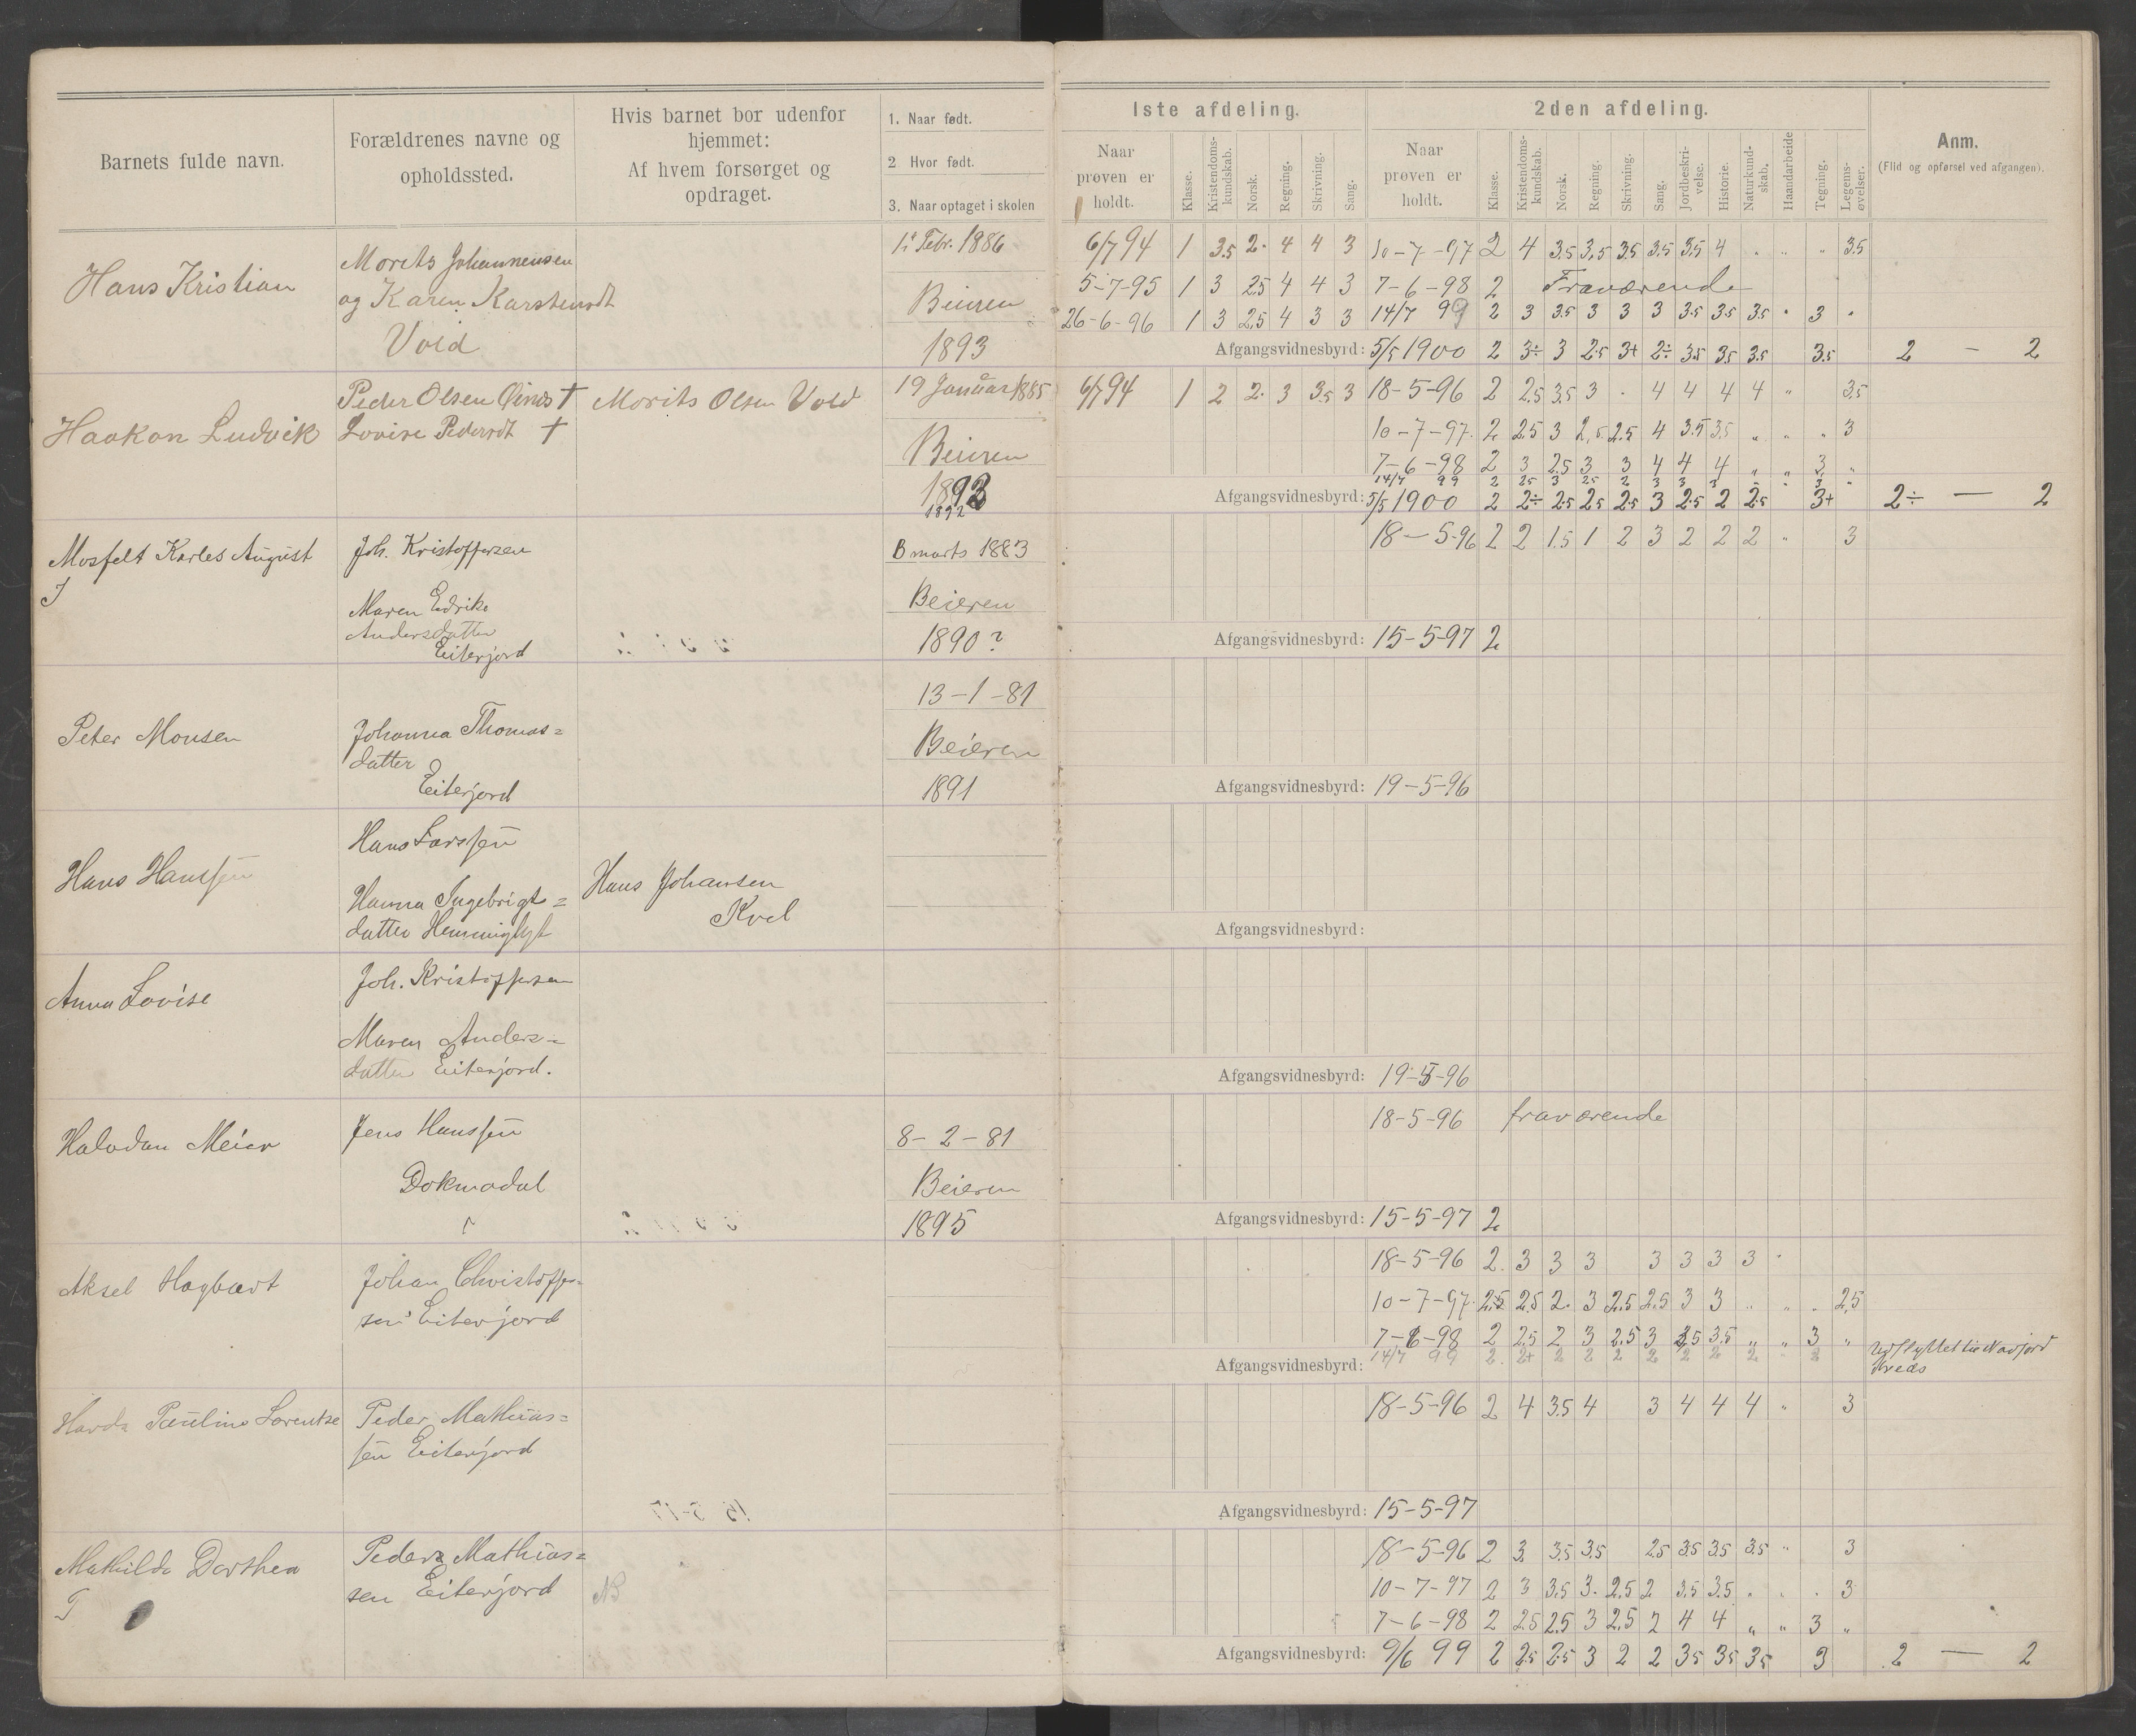 Barnets fulde navn.
Forældrenes navne og
opholdssted.
Hvis barnet bor udenfor
hjemmet:
Af hvem forsørget og
opdraget.
1. Naar født.
2. Hvor født.
3. Naar optaget i skolen
1ste afdeling.
Naar
prøven er
holdt.
Klasse.
Kristendoms-
kundskab.
Norsk.
Regning.
Skrivning.
Sang.
2den afdeling.
Naar
prøven er
holdt.
Klasse.
Kristendoms-
kundskab.
Norsk.
Regning.
Skrivning.
Sang.
Jordbeskri-
velse.
Historie.
Naturkund-
skab.
Haandarbeide
Tegning.
Legems-
øvelser.
Anm.
(Flid og opførsel ved afgangen).
Hans Kristian
Morits Johannensen
og Karen Karstensdt
Vold
Febr. 1886
Beiren
1893
6/7 94 1 3.5 2. 4 4 3 10-7-97 2 4 3.5 3,5 3.5 3.5 3,5 4 . " " 3.5
5-7-95 1 3 2.5 4 4 3 7-6-98 2 Fraværende
26-6-96 1 3 2,5 4 3 3 14/7 99 2 3 3.5 3 3 3 3.5 3.5 3.5 " 3 "
Afgangsvidnesbyrd: 5/5 1900 2 3÷ 3 2.5 3+ 2÷ 3.5 3.5 3.5 3.5 2 — 2
Haakon Ludvik
Peder Olsen †
Lovise Pedersdt †
Morits Olsen Vold
19 Januar 1885
Beiren
1893
1892
6/7 94 1 2 2. 3 3.5 3 18-5-96 2 2.5 3.5 3 . 4 4 4 4 " 3.5
10-7-97. 2 2.5 3 2,5. 2.5 4 3.5 3.5 " " " 3
7-6-98 2 3 2.5 3 3 4 4 4 " " 3 "
14/7 99 2 2.5 3 2.5 2 3 3 3 " " 3 "
Afgangsvidnesbyrd: 5/5 1900 2 2÷ 2.5 2.5 2.5 3 2.5 2 2.5 3+ 2÷ — 2
Mosfelt Karles August
Joh. Kristoffersen
Maren Edrike
Andersdatter
Eiterjord
marts 1883
Beieren
1890?
18-5-96 2 2 1.5 1 2 3 2 2 2 " 3
Afgangsvidnesbyrd: 15-5-97 2
Peter Monsen
Johanna Thomas=
datter
Eiterjord
13-1-81
Beieren
1891
Afgangsvidnesbyrd: 19-5-96
Hans Hanssen
Hans Larssen
Hanna Ingebrigt=
datter
Hans Johansen
Kvel
Afgangsvidnesbyrd:
Anna Lovise
Joh. Kristoffersen
Maren Anders=
datter Eiterjord.
Afgangsvidnesbyrd: 19-5-96
Halvdan Meier
Jens Hanssen
Dokmodal
8-2-81
Beieren
1895
18-5-96 fraværende
Afgangsvidnesbyrd: 15-5-97 2
Aksel Hagbart
Johan Christoffer=
sen Eiterjord
18-5-96 2. 3 3 3 3 3 3 3 "
10-7-97. 2.5 2.5 2. 3 2.5 2.5 3 3 " " " 2,5
7-6-98 2 2.5 2 3 2.5 3 3.5 3.5 " " 3 "
Afgangsvidnesbyrd: 14/7 99 2 2+ 2 2 2 2 2 2 2
Udflyttet til
Kreds
Pauline Lorentse
Peder Mathias=
sen Eiterjord
18-5-96 2 4 3.5 4 3 4 4 4 " 3
Afgangsvidnesbyrd: 15-5-97
Mathilde Dorthea
Peder Mathias=
sen Eiterjord
NB
18-5-96 2 3. 3.5 3.5 2.5 3.5 3.5 3.5 " 3
10-7-97 2 3 3.5 3. 2.5 2 3.5 3.5 . . . 3
7-6-98 2 2.5 2.5 3 2.5 2 4 4 " " 3 "
Afgangsvidnesbyrd: 9/6 99 2 2.5 2.5 3 2 2 3.5 3.5 3.5 3 2 — 2